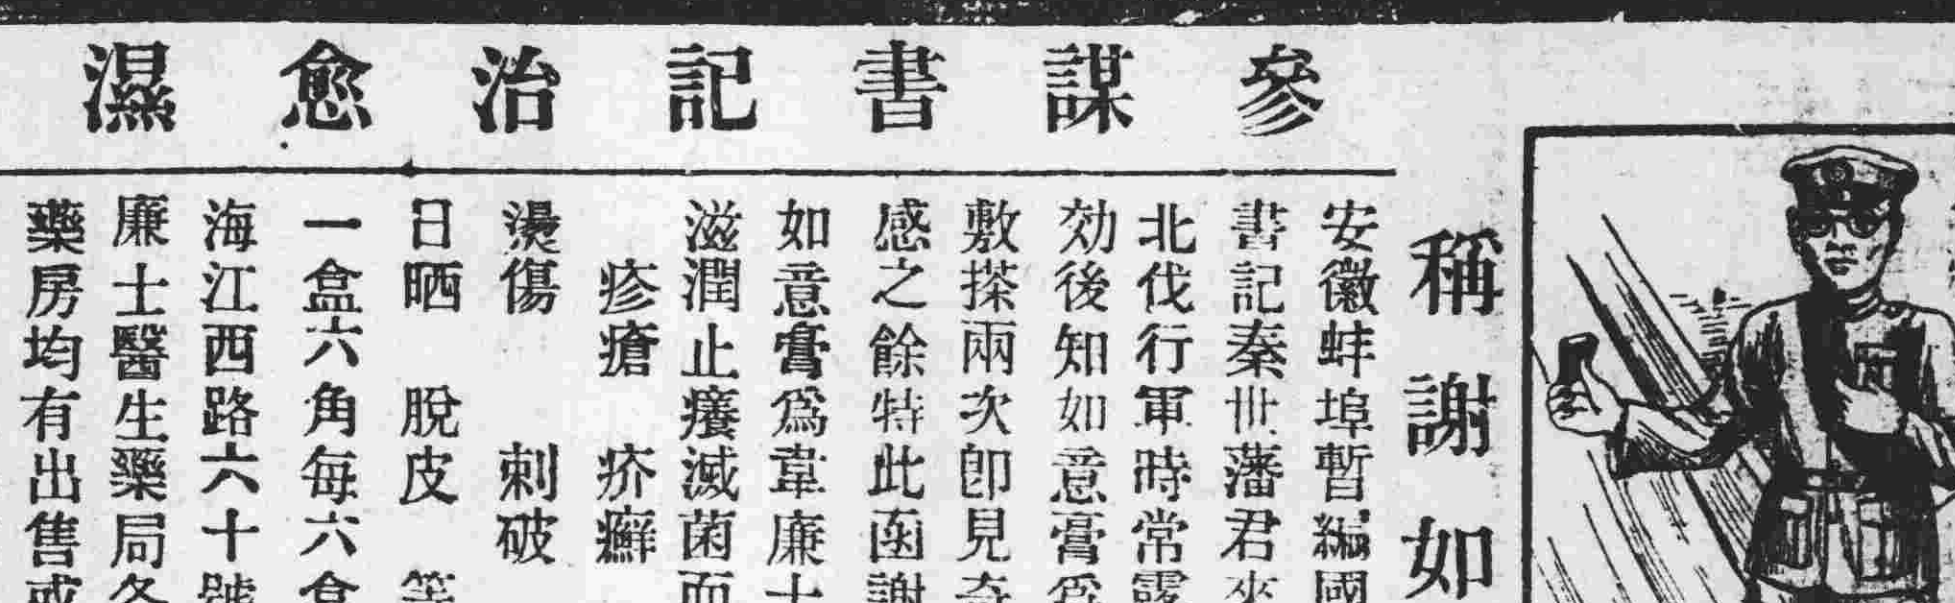 參謀書記治愈濕
稱謝如
安徽蚌埠暫編國
書記秦世藩君來
北伐行軍時常露
効後知如意膏爲
敷搽兩次卽見奇
感之餘特此函謝
如意膏爲韋廉士
滋潤止癢滅菌而
疹瘡 疥癬
燙傷 刺破
日晒 脫皮 等
一盒六角每六盒
海江西路六十號
廉士醫生藥局各
藥房均有出售或